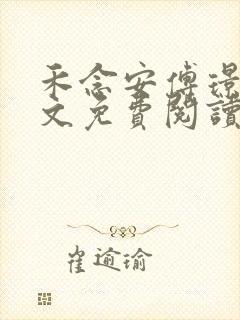 禾念安傅璟
文免費閱讀
崔逾瑜